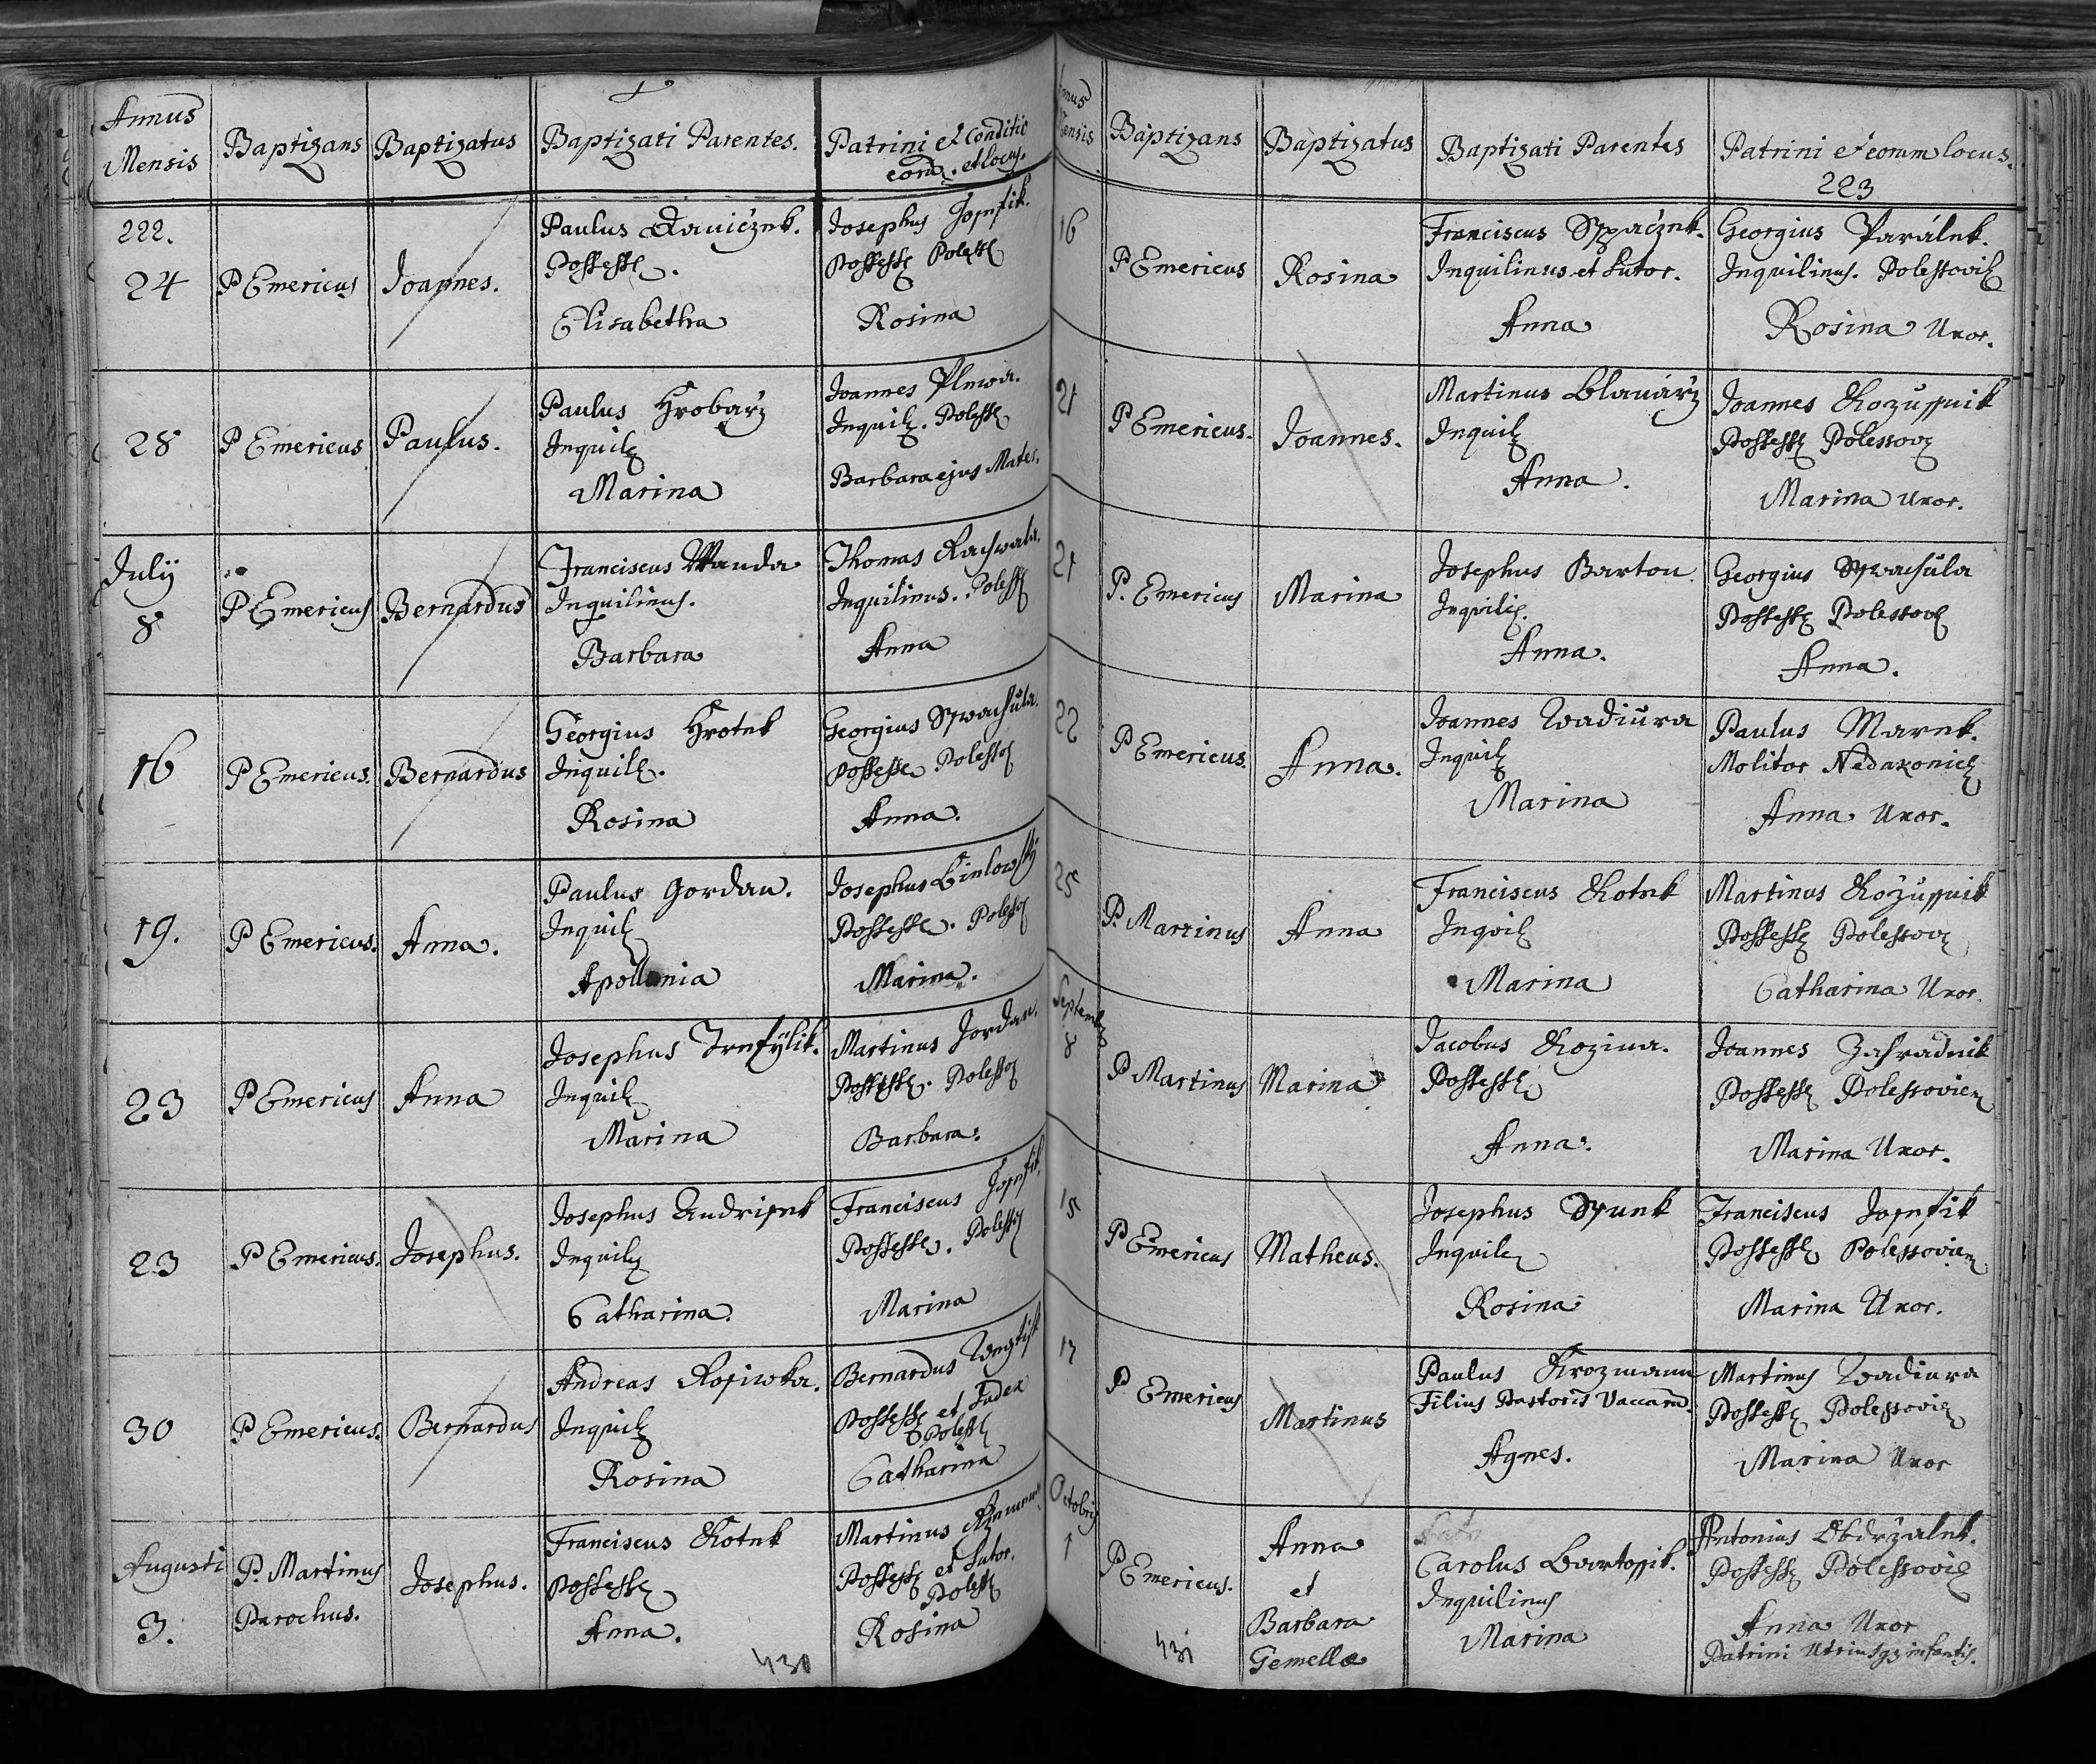 Annus
Mensis
Baptizans
Baptizatus
Baptizati Parentes.
Patrini et Conditio
cond. et locus.
222.
24
P Emericus
Joannes.
Paulus
Possess.
Elisabetha
Josephus
Possess Poless
Rosina
28
P Emericus
Paulus.
Paulus Hrobarz
Inquil
Marina
Joannes Plewa.
Inquil. Poless
Barbara ejus Mater.
July
8
P Emericus
Bernardus
Franciscus Wanda
Inquilinus.
Barbara
Thomas Rachwala.
Inquilinus. Poless
Anna
16
P Emericus.
Bernardus
Georgius Hrotek
Inquil.
Rosina
Georgius
Possess Poless
Anna.
19.
P Emericus.
Anna.
Paulus Gordan.
Inquil
Apollonia
Josephus
Possess. Poless
Marina.
23
P Emericus
Anna
Josephus
Inquil
Marina
Martinus Jordan.
Possess. Poless
Barbara.
23
P Emericus.
Josephus.
Josephus Andrisek
Inquil
Catharina.
Franciscus
Possess. Poless
Marina
30
P Emericus.
Bernardus
Andreas
Inquil
Rosina
Bernardus
Possess et Judex
Poless
Catharina
Augusti
3.
P. Martinus
Parochus.
Josephus.
Franciscus Kotek
Possess
Anna.
Martinus
Possess et Sutor.
Poless
Rosina
430
Annus
Mensis
Baptizans
Baptizatus
Baptizati Parentes
Patrini et eorum locus.
223
16
P Emericus
Rosina
Franciscus Spaczek.
Inquilinus et Sutor.
Anna
Georgius Parálek.
Inquilinus. Polessovi
Rosina Uxor.
21
P Emericus.
Joannes.
Martinus Blawárz
Inquil
Anna.
Joannes Kozussnik
Possess Polessov
Marina Uxor.
21
P. Emericus
Marina
Josephus Barton
Inquili.
Anna.
Georgius
Possess Polessov
Anna.
22
P Emericus.
Anna.
Joannes Wadiura
Inquil
Marina
Paulus Marek.
Molitor Nedakonic
Anna Uxor.
25
P. Martinus
Anna
Franciscus Kotek
Inquil
Marina
Martinus Kozussnik
Possess Polessov
Catharina Uxor.
Septemb
8
P Martinus
Marina
Jacobus Kozina.
Possess
Anna.
Joannes Zahradnik
Possess Polessovien
Marina Uxor.
15
P Emericus
Matheus.
Josephus
Inquil
Rosina
Franciscus
Possess Polessovien
Marina Uxor.
17
P Emericus
Martinus
Paulus Krozmann
Filius Pastoris Vaccaru.
Agnes.
Martinus Wadiura
Possess Polessovi
Marina Uxor
Octobris
1
P Emericus.
Anna
et
Barbara
Gemellæ
Carolus Bartossik.
Inquilinus
Marina
Antonius Obdrzalek.
Possess Polessovi
Anna Uxor
Patrini Utriusq infantis.
431